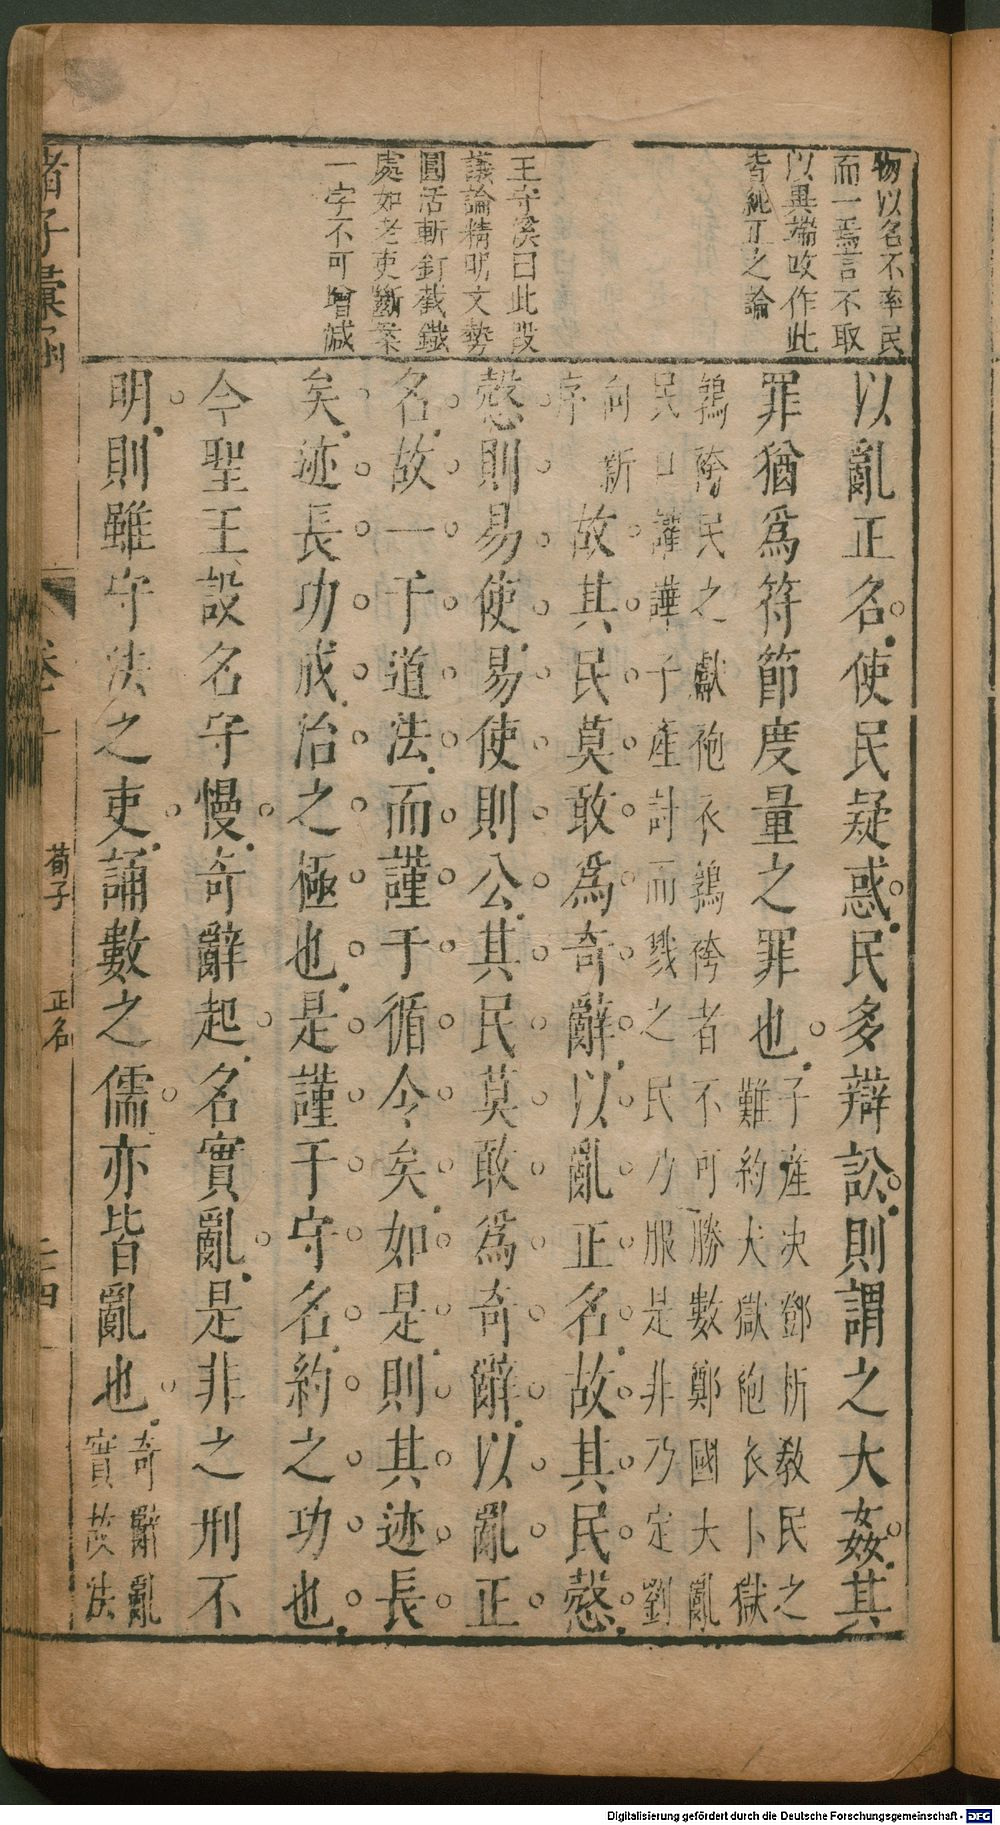 物以名不率民
而一焉言不取
以異端攻作此
皆純正之論
王守溪曰此段
議論精明文勢
圓活斬釘截鐵
處如老吏斷案
一字不可增減
以亂正名使民疑惑民多辯訟則謂之大姦其
罪猶爲符節度量之罪也子產决鄧析教民之
難約大獄袍衣小獄
鶉袴民之獻袍衣鶉袴者不可勝數鄭國大亂
民口讙譁子產討而戮之民乃服是非乃定劉
向新
序
故其民莫敢爲奇辭以亂正名故其民慤
慤則易使易使則公其民莫敢爲奇辭以亂正
名故一于道法而謹于循令矣如是則其迹長
矣迹長功成治之極也是謹于守名約之功也
今聖王設名守慢奇辭起名實亂是非之刑不
明則雖守法之吏誦數之儒亦皆亂也奇辭亂
實故法
諸子彙函
卷十
荀子
正名
二四
Digitalisierung gefördert durch die Deutsche Forschungsgemeinschaft - DFG